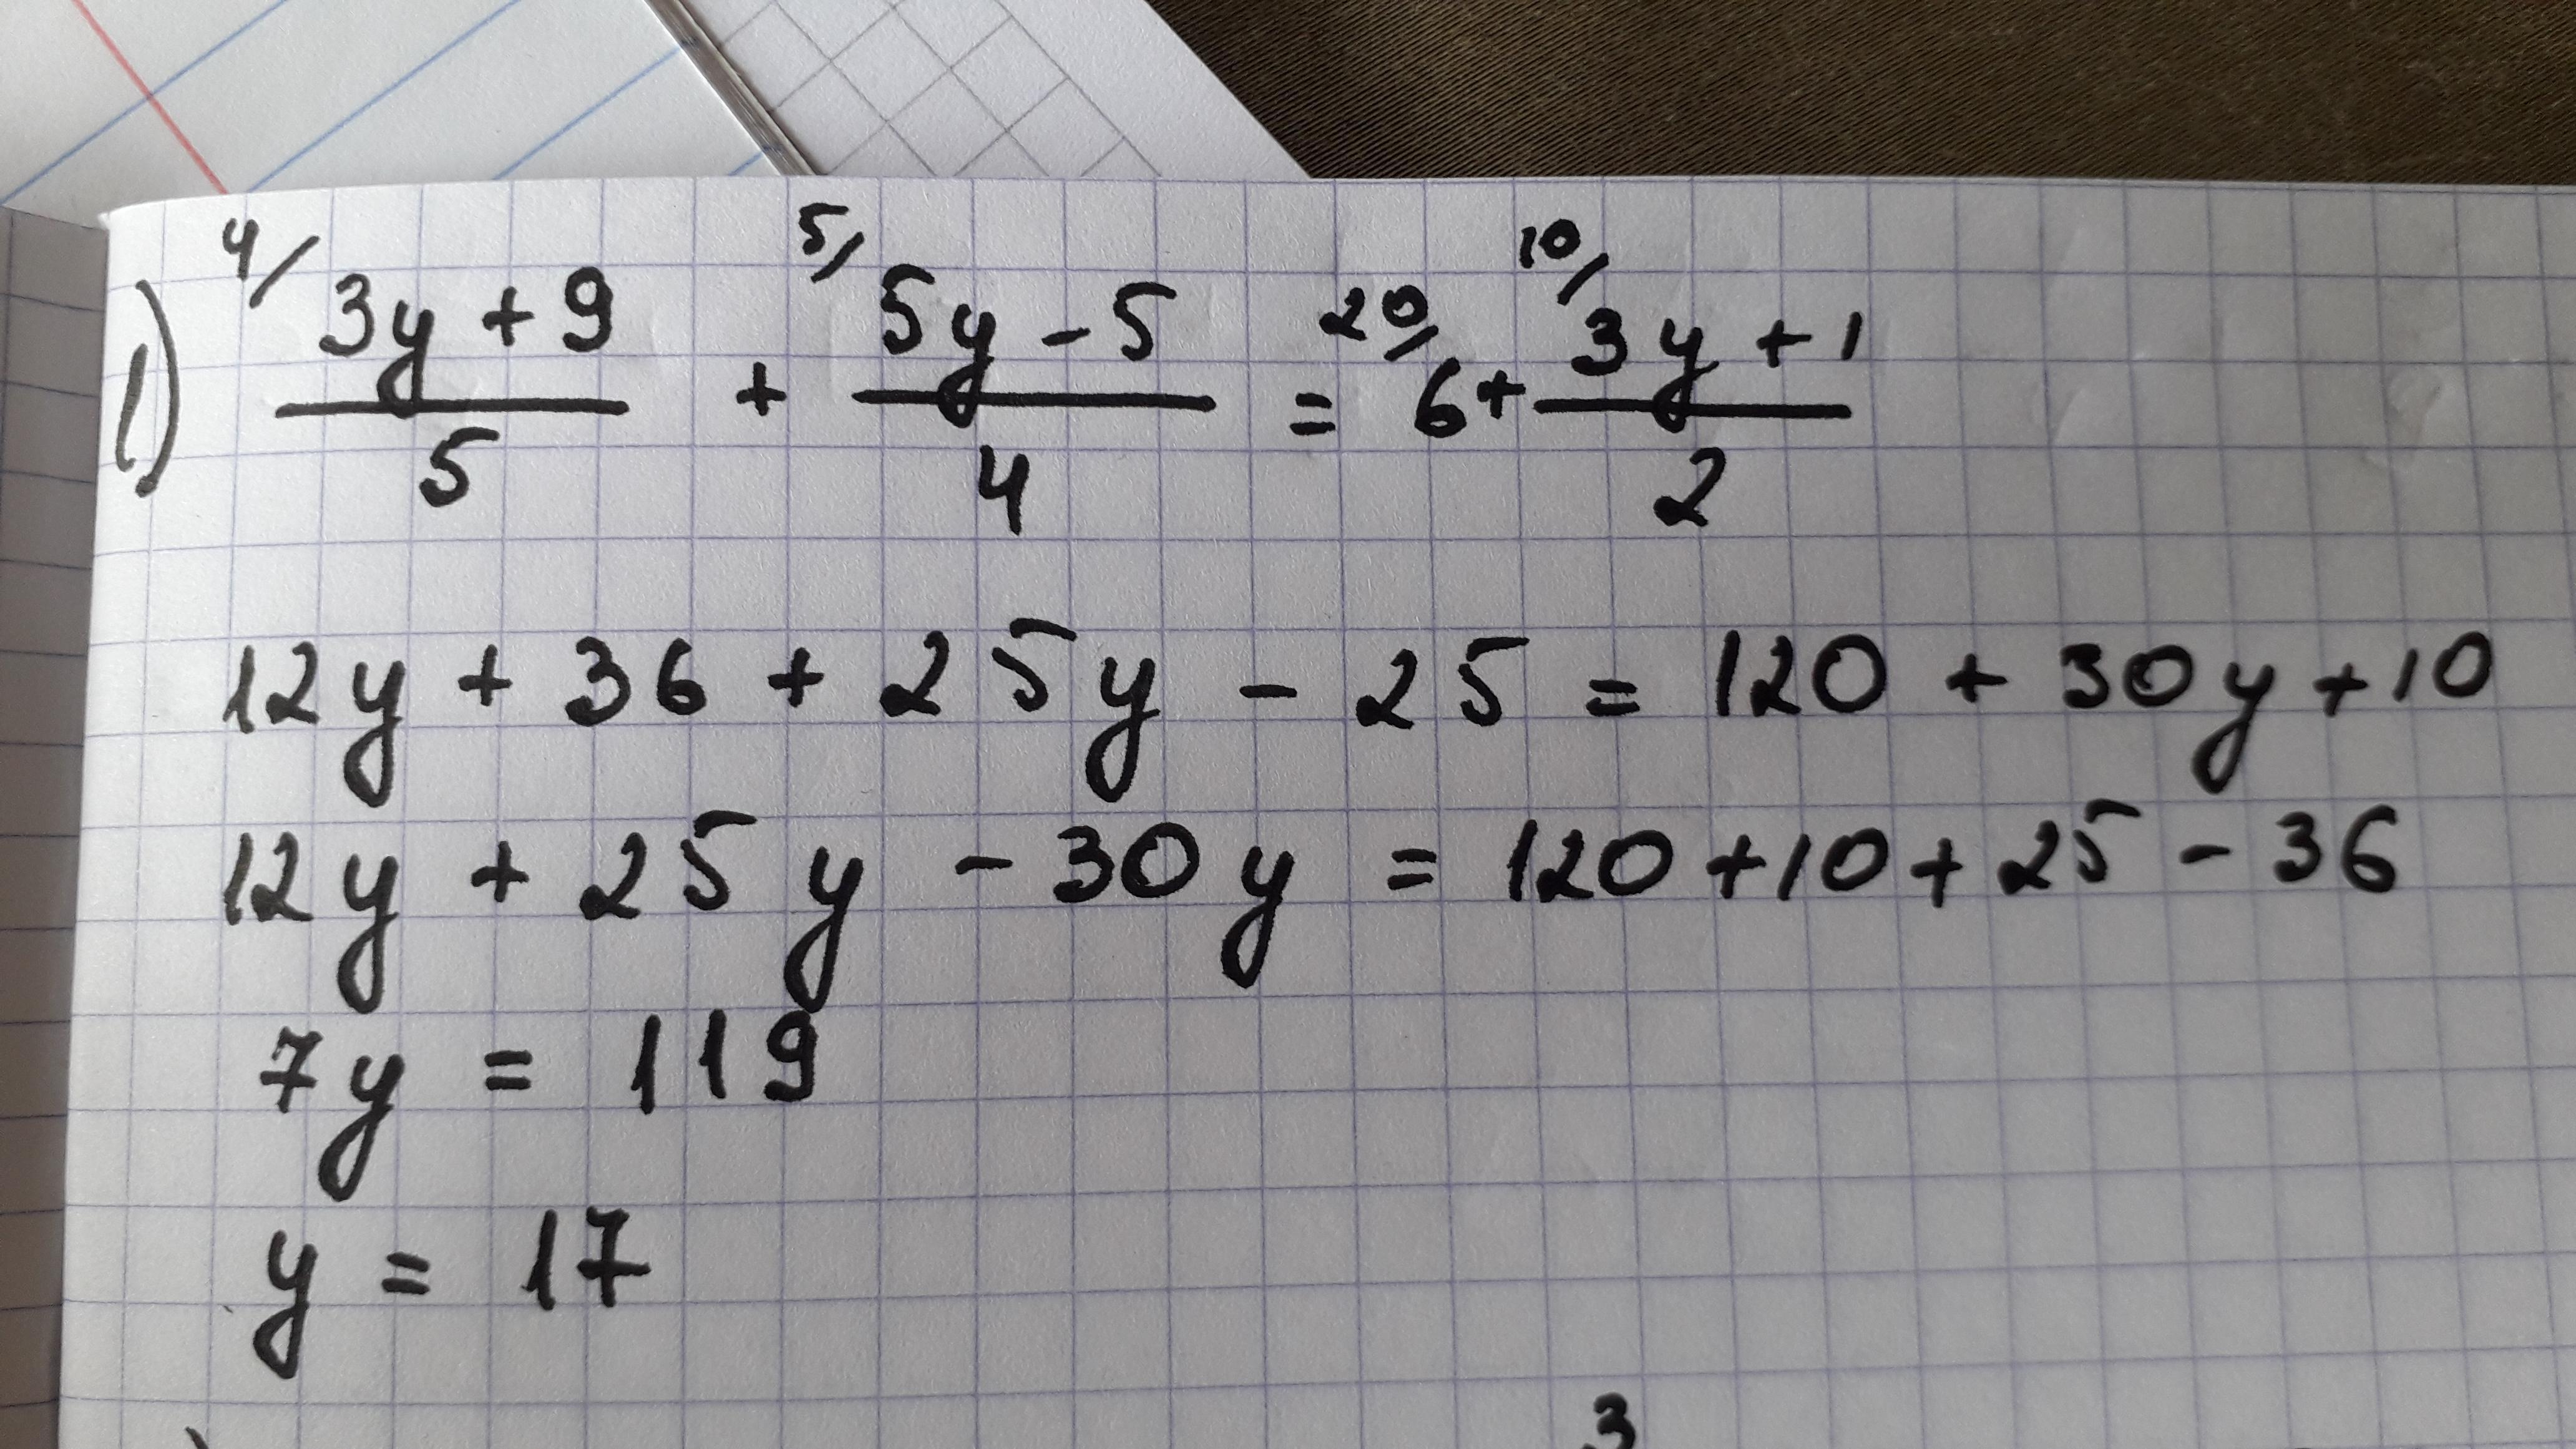 1) 4/ (3y + 9)/5 + 5/ (5y - 5)/4 = 20/ 6 + 10/ (3y + 1)/2
12y + 36 + 25y - 25 = 120 + 30y + 10
12y + 25y - 30y = 120 + 10 + 25 - 36
7y = 119
y = 17
3